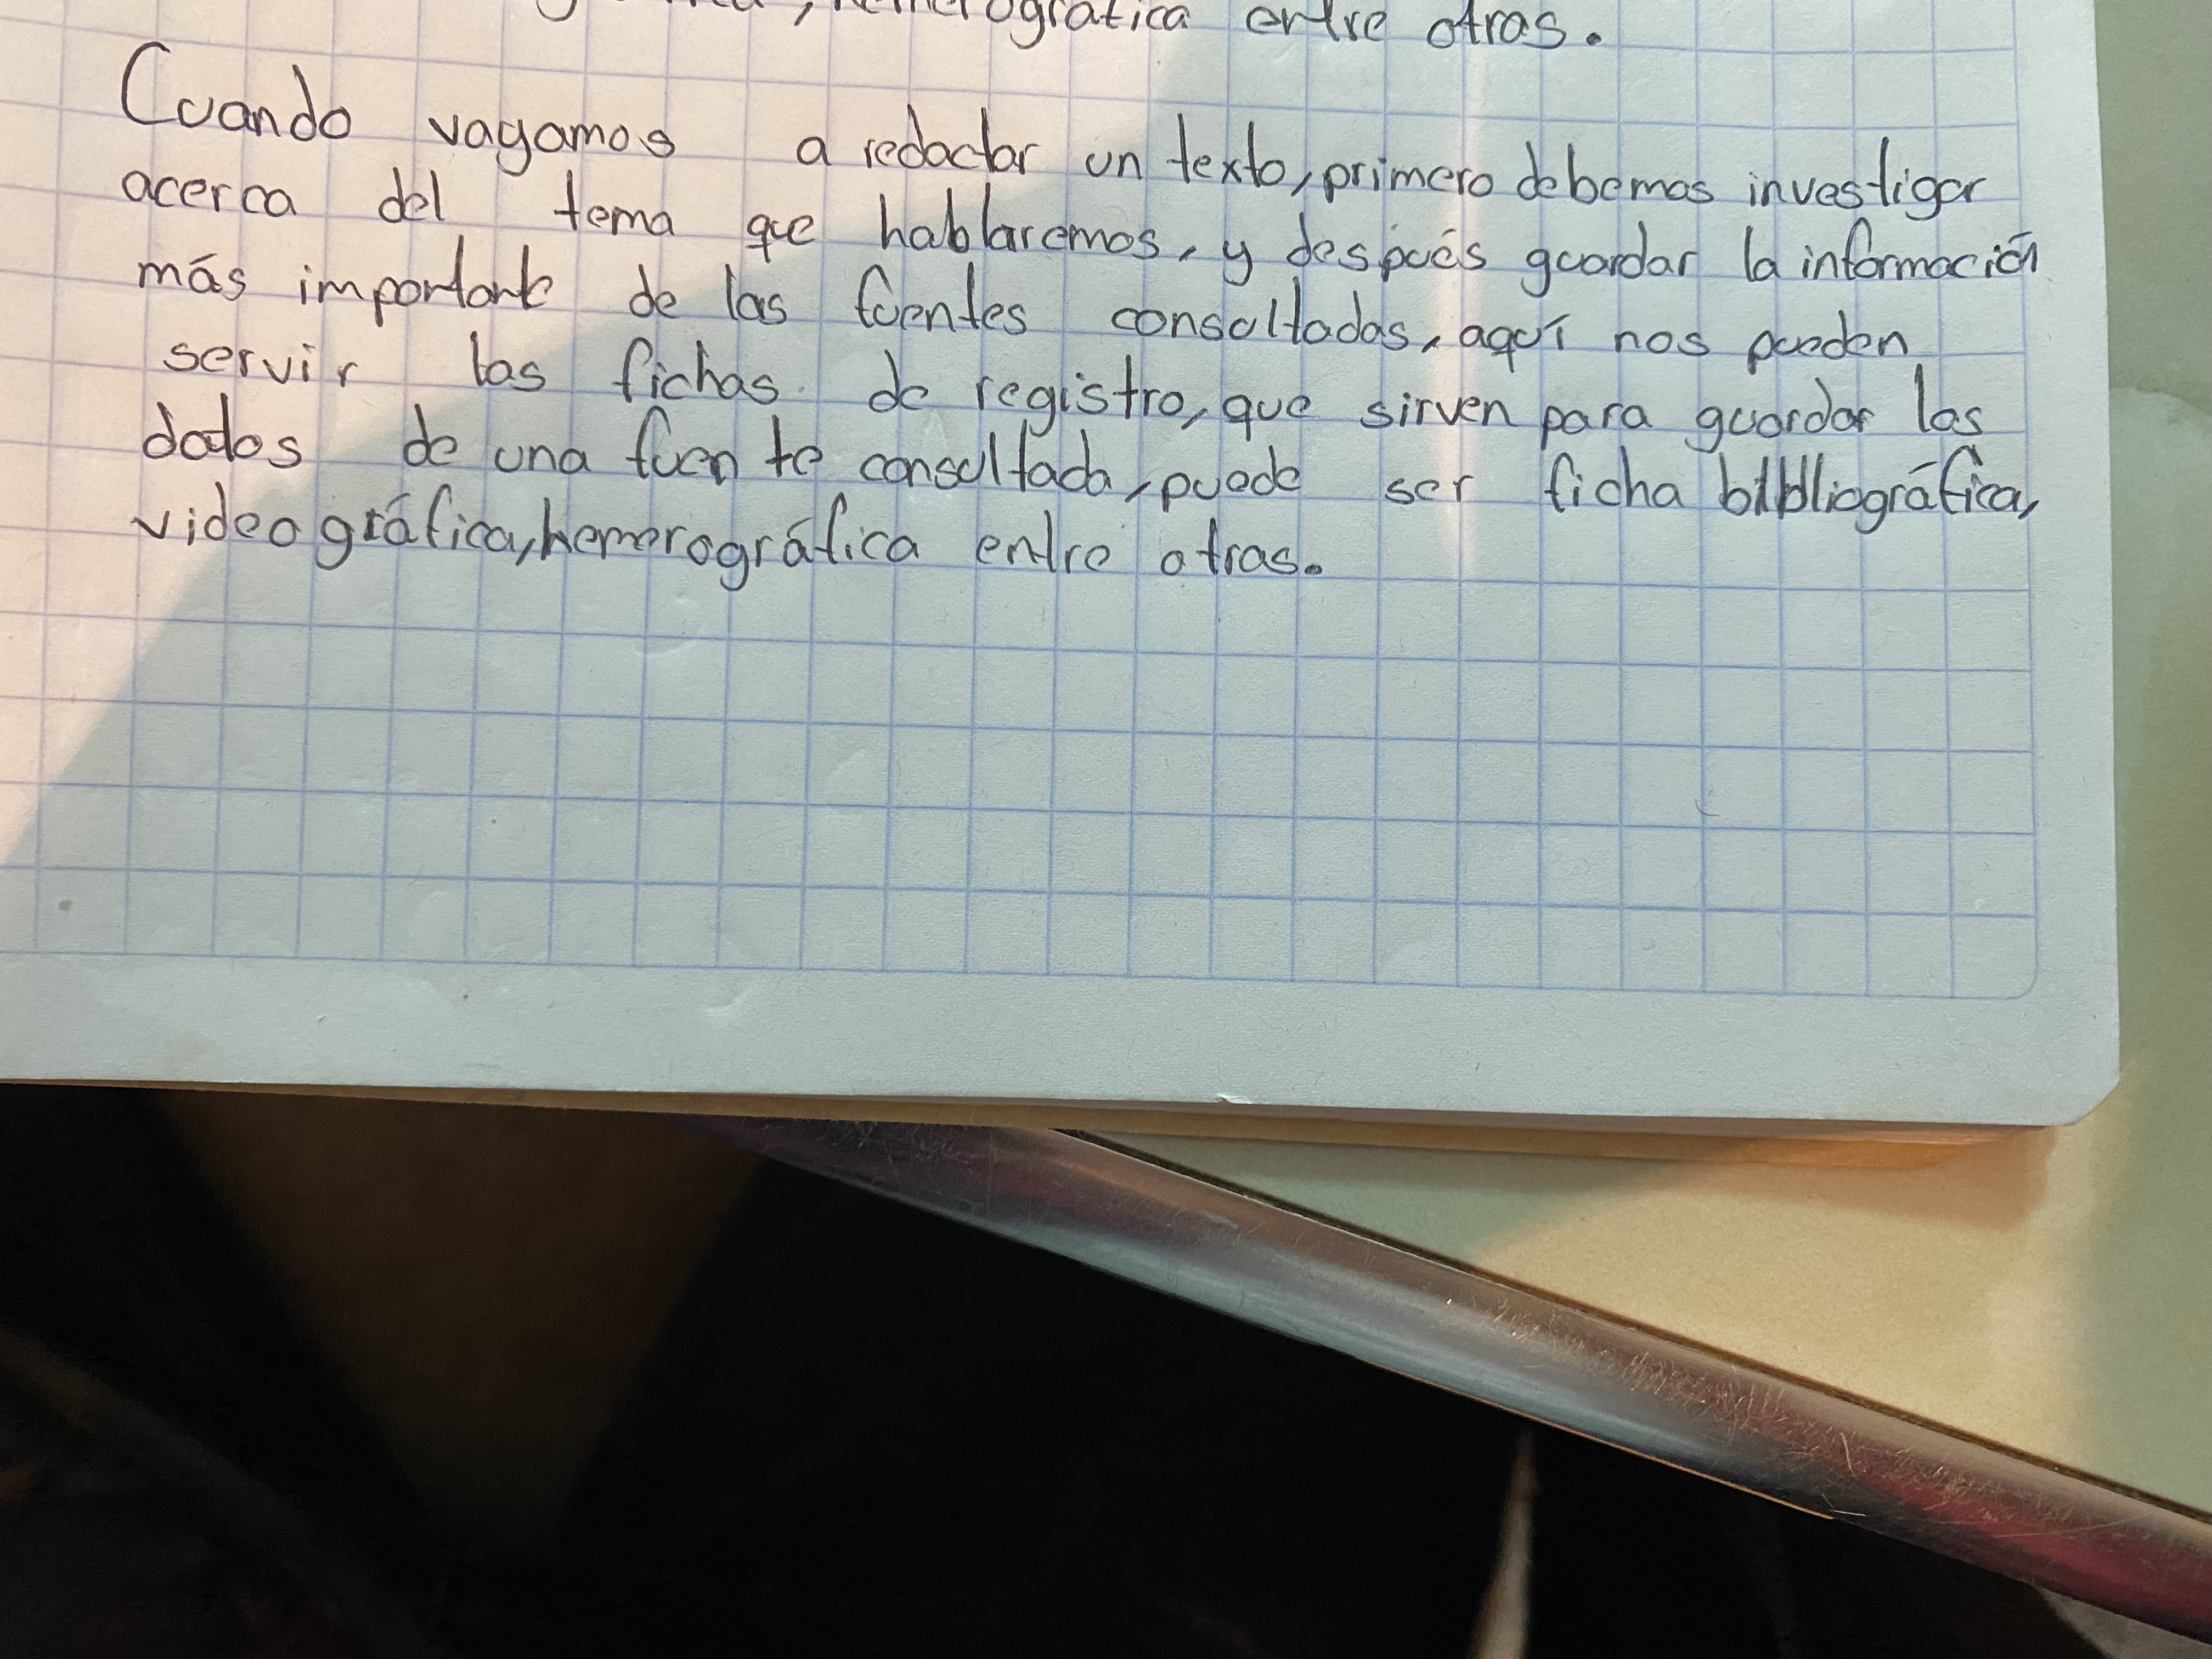 hemerográfica entre otras.
Cuando vayamos a redactar un texto, primero debemos investigar
acerca del tema que hablaremos, y después guardar la información
más importante de las fuentes consultadas, aquí nos pueden
servir las fichas de registro, que sirven para guardar los
dados de una fuente consultada, puede ser ficha bibliográfica,
videográfica, hemerográfica entre otras.